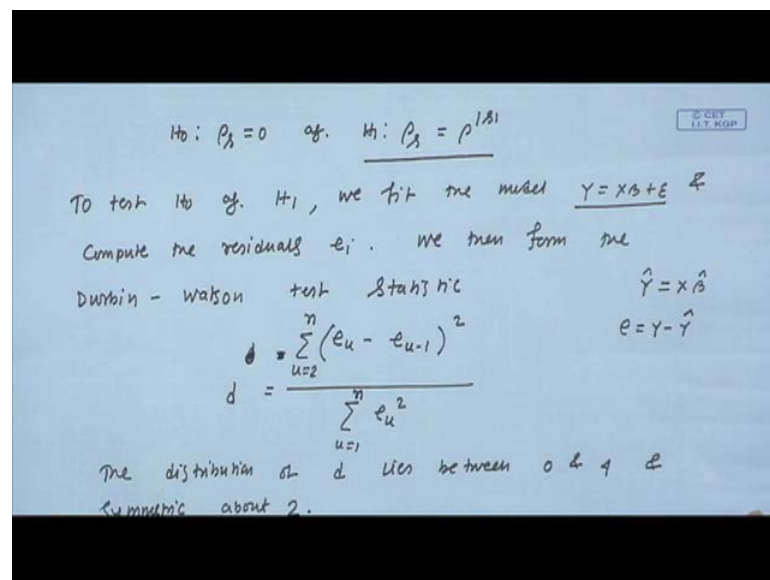 © CET
I.I.T. KGP
H₀: ρₛ = 0 ag. H₁: ρₛ = ρ^|s|
To test H₀ ag. H₁, we fit the model Y = Xβ + ε &
Compute the residuals eᵢ. We then form the
Durbin - Watson test Statistic
Ŷ = Xβ̂
e = Y - Ŷ
d = ∑_{u=2}^{n} (e_u - e_{u-1})² / ∑_{u=1}^{n} e_u²
The distribution of d lies between 0 & 4 &
Symmetric about 2.